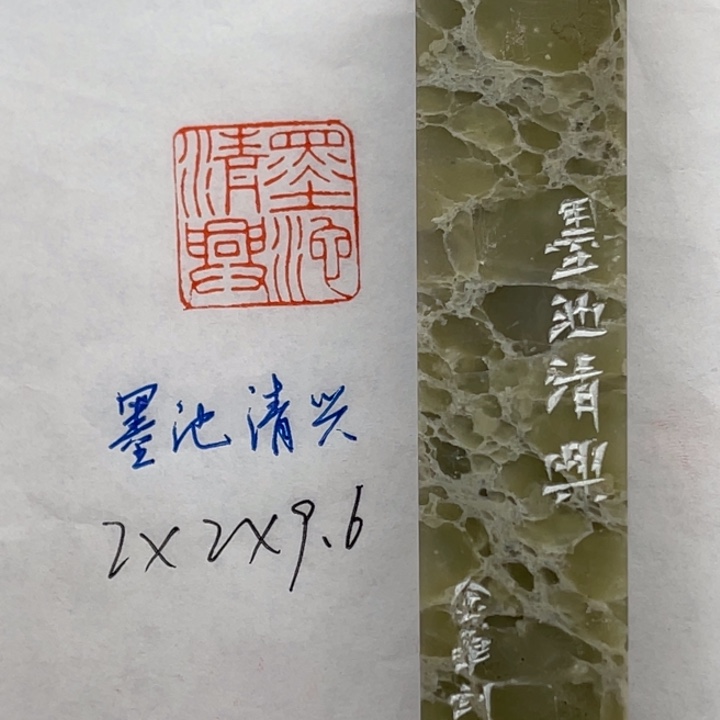 墨池清興
墨池清兴
2×2×9.6
墨池清興